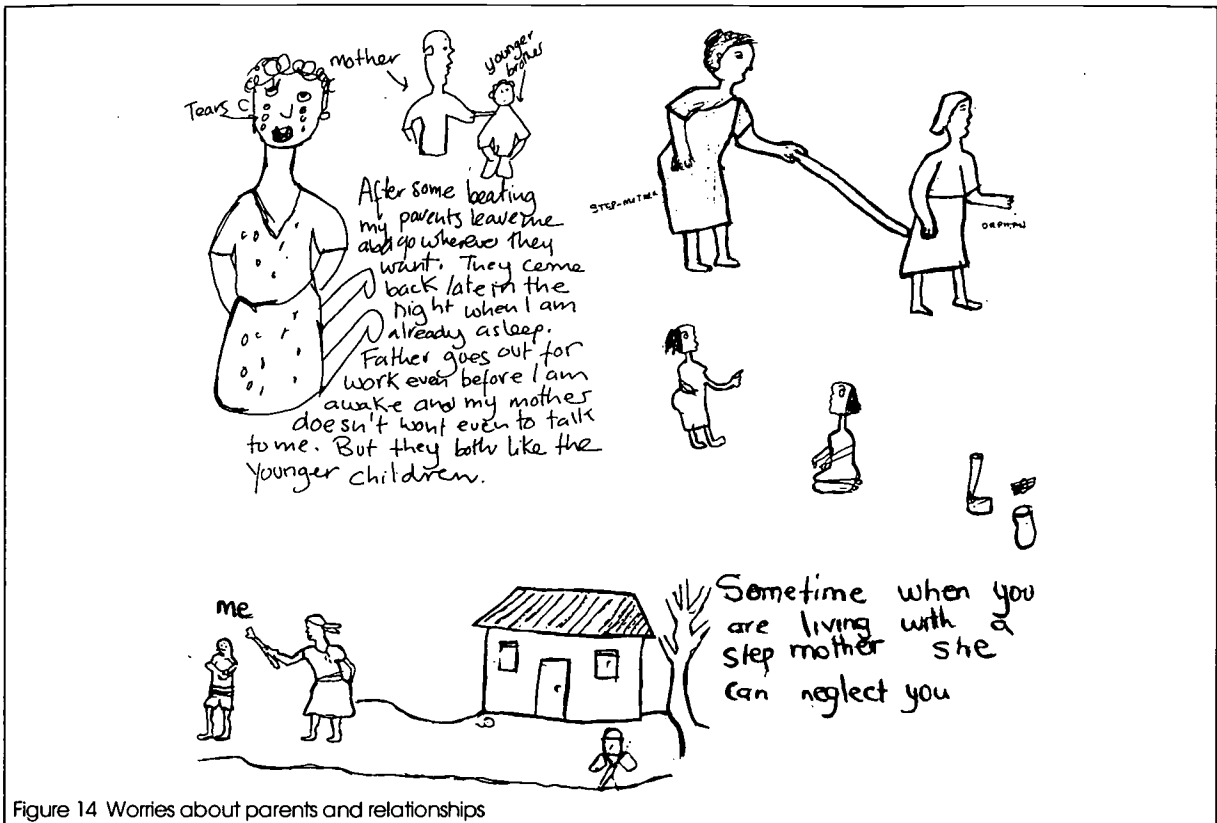 mother
younger
brother
Tears
After some beating
my parents leave me
and go wherever they
want. They come
back late in the
night when I am
already asleep.
Father goes out for
work even before I am
awake and my mother
doesn't wont even to talk
to me. But they both like the
Younger children.
STEP-MOTHER
ORPHAN
me
Sometime when you
are living with a
step mother she
can neglect you
Figure 14 Worries about parents and relationships